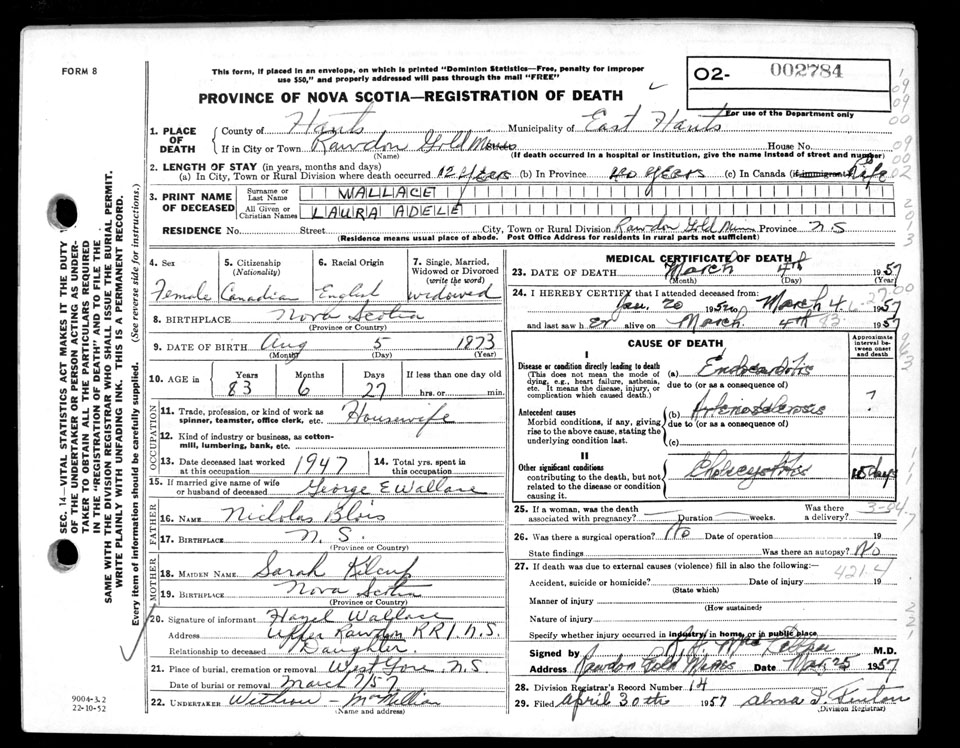 FORM 8
This form, if placed in an envelope, on which is printed "Dominion Statistics—Free, penalty for improper
use $50," and properly addressed will pass through the mail "FREE"
02- 002784
PROVINCE OF NOVA SCOTIA—REGISTRATION OF DEATH
For use of the Department only
1. PLACE OF DEATH
County of Hants Municipality of East Hants
If in City or Town Rawdon Gold Mines House No.
(Name) (If death occurred in a hospital or institution, give the name instead of street and number)
2. LENGTH OF STAY (in years, months and days)
(a) In City, Town or Rural Division where death occurred 12 years (b) In Province 40 years (c) In Canada (if immigrant) Life
3. PRINT NAME OF DECEASED
Surname or Last Name WALLACE
All Given or Christian Names LAURA ADELE
RESIDENCE No. Street City, Town or Rural Division Rawdon Gold Mines Province N S
(Residence means usual place of abode. Post Office Address for residents in rural parts not sufficient)
4. Sex
Female
5. Citizenship
(Nationality)
Canadian
6. Racial Origin
English
7. Single, Married, Widowed or Divorced
(write the word)
widowed
8. BIRTHPLACE Nova Scotia
(Province or Country)
9. DATE OF BIRTH Aug 5 1873
(Month) (Day) (Year)
10. AGE in
Years Months Days If less than one day old
83 6 27 hrs. or min.
OCCUPATION
11. Trade, profession, or kind of work as spinner, teamster, office clerk, etc. Housewife
12. Kind of industry or business, as cotton-mill, lumbering, bank, etc.
13. Date deceased last worked at this occupation 1947
14. Total yrs. spent in this occupation
15. If married give name of wife or husband of deceased George E Wallace
FATHER
16. NAME Nicholas Blois
17. BIRTHPLACE N. S.
(Province or Country)
MOTHER
18. MAIDEN NAME Sarah Kilcup
19. BIRTHPLACE Nova Scotia
(Province or Country)
20. Signature of informant Hazel Wallace
Address Upper Rawdon RR 1 N.S.
Relationship to deceased Daughter
21. Place of burial, cremation or removal West Gore N.S.
Date of burial or removal March 7/57
22. UNDERTAKER Withrow - McMillan
(Name and address)
MEDICAL CERTIFICATE OF DEATH
23. DATE OF DEATH March 4th 1957
(Month) (Day)
24. I HEREBY CERTIFY that I attended deceased from:
Jan. 20 1957 to March 4 1957
and last saw her alive on March 4th 1957
CAUSE OF DEATH
Approximate interval between onset and death
I
Disease or condition directly leading to death
(This does not mean the mode of dying, e.g., heart failure, asthenia, etc. It means the disease, injury, or complication which caused death.)
(a) Endocarditis
due to (or as a consequence of)
Antecedent causes
Morbid conditions, if any, giving rise to the above cause, stating the underlying condition last.
(b) Arteriosclerosis ?
due to (or as a consequence of)
(c)
II
Other significant conditions
contributing to the death, but not related to the disease or condition causing it.
Cholecystitis 15 days
25. If a woman, was the death associated with pregnancy? Duration weeks. Was there a delivery?
26. Was there a surgical operation? No Date of operation 19
State findings Was there an autopsy? No
27. If death was due to external causes (violence) fill in also the following:—
421.4
Accident, suicide or homicide? Date of injury 19
(State which)
Manner of injury
(How sustained)
Nature of injury
Specify whether injury occurred in industry, in home, or in public place
Signed by M.D.
Address Rawdon Gold Mines Date 1957
28. Division Registrar's Record Number 14
29. Filed April 30th 1957 Alma
(Division Registrar)
SEC. 14—VITAL STATISTICS ACT MAKES IT THE DUTY
OF THE UNDERTAKER OR PERSON ACTING AS UNDER-
TAKER TO OBTAIN ALL THE PARTICULARS REQUIRED
IN THE "REGISTRATION OF DEATH" AND TO FILE THE
SAME WITH THE DIVISION REGISTRAR WHO SHALL ISSUE THE BURIAL PERMIT.
WRITE PLAINLY WITH UNFADING INK. THIS IS A PERMANENT RECORD.
Every item of information should be carefully supplied. (See reverse side for instructions.)
9004-3.2
22-10-52